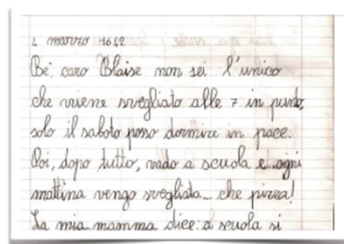 4 marzo 1642
Bé, caro Blaise non sei l'unico
che viene svegliato alle 7 in punto,
solo il sabato posso dormire in pace.
Poi, dopo tutto, vado a scuola e ogni
mattina vengo svegliata... che pizza!
La mia mamma dice: a scuola si